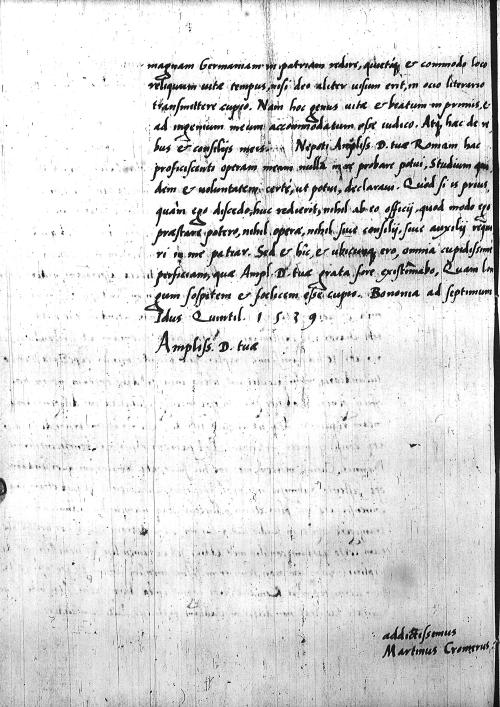 magnam Germaniam in patriam redire, quietiq; et commodo loco
reliquum uitæ tempus, nisi deo aliter uisum erit, in ocio literario
transmittere cupio. Nam hoc genus uitæ et beatum in primis, et
ad ingenium meum accommodatum esse iudico. Atq; hæc de re
bus et consilijs meis. Nepoti Ampliss. D. tuæ Romam hac
proficiscenti operam meam nulla in re probare potui, Studium qui
dem et uoluntatem certè, ut potui, declaraui. Quòd si is prius
quàm ego discedo, huc redierit, nihil ab eo officij, quod modo ego
præstare potero, nihil operæ, nihil siue consilij, siue auxilij requi
ri in me patiar. Sed et hîc, et ubicunq; ero, omnia cupidissime
perficiam, quæ Ampl. D. tuæ grata fore existimabo, Quam lon
gum sospitem et foelicem esse cupio. Bononia ad septimum
Idus Quintil. 1 5 3 9
Ampliss. D. tuæ
addictissimus
Martinus Cromerus